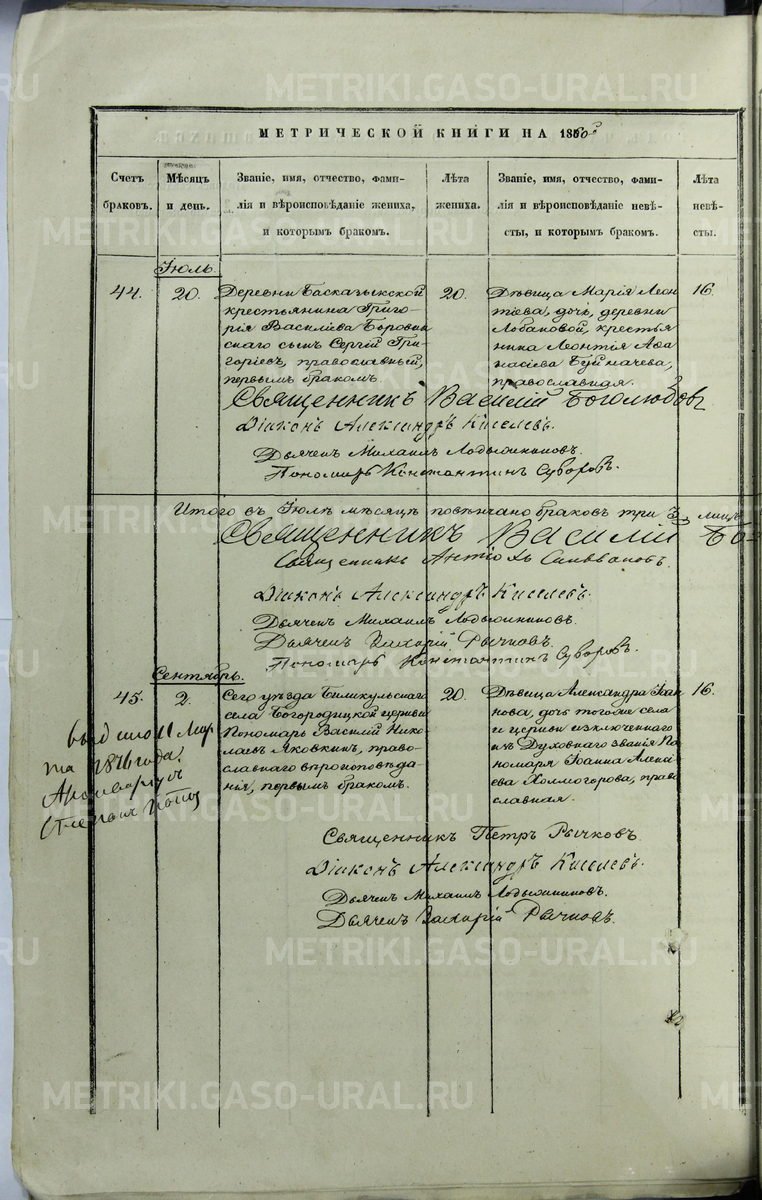 МЕТРИЧЕСКОЙ КНИГИ НА 1860
Счетъ браковъ.
Мѣсяцъ и день.
Званіе, имя, отчество, фами-
лія и вѣроисповѣданіе жениха,
и которымъ бракомъ.
Лѣта жениха.
Званіе, имя, отчество, фами-
лія и вѣроисповѣданіе невѣ-
сты, и которымъ бракомъ.
Лѣта невѣ-
сты.
Іюль
44.
20.
Деревни
крестьянина Григо-
рія Василіева Борови
скаго сынъ Сергій Гри-
горіевъ, православный,
первымъ бракомъ.
20.
Дѣвица Марія Леон
тіева, дочь, деревни
Лобановой, крестья
нина Леонтія Афа
насіева
православная.
16.
Священникъ Василій Боголюбовъ
Діаконъ Александръ Киселевъ.
Дьячекъ Михаилъ Ладыжниковъ.
Пономарь Константинъ Суворовъ.
Итого въ Іюлѣ мѣсяцѣ повѣнчано браковъ три 3
Священникъ Василій Бо
Священникъ Антіохъ
Діаконъ Александръ Киселевъ.
Дьячекъ Михаилъ Ладыжниковъ.
Дьячекъ Захарій Рычковъ.
Пономарь Константинъ Суворовъ.
Сентябрь.
45.
2.
Сего уѣзда Биликульскаго
села Богородицкой церкви
Пономарь Василій Нико-
лаевъ Яковкинъ, право-
славнаго вѣроисповѣда-
нія, первымъ бракомъ.
20.
Дѣвица Александра Іоан
нова, дочь тогоже села
и церкви изключеннаго
изъ Духовнаго званія По
номаря Іоанна Алексі
ева Холмогорова, прав
славная.
16.
11 Мар
та 1876 года.
Священникъ Петръ Рычковъ.
Діаконъ Александръ Киселевъ.
Дьячекъ Михаилъ Ладыжниковъ.
Дьячекъ Захарій Рычковъ.
METRIKI.GASO-URAL.RU